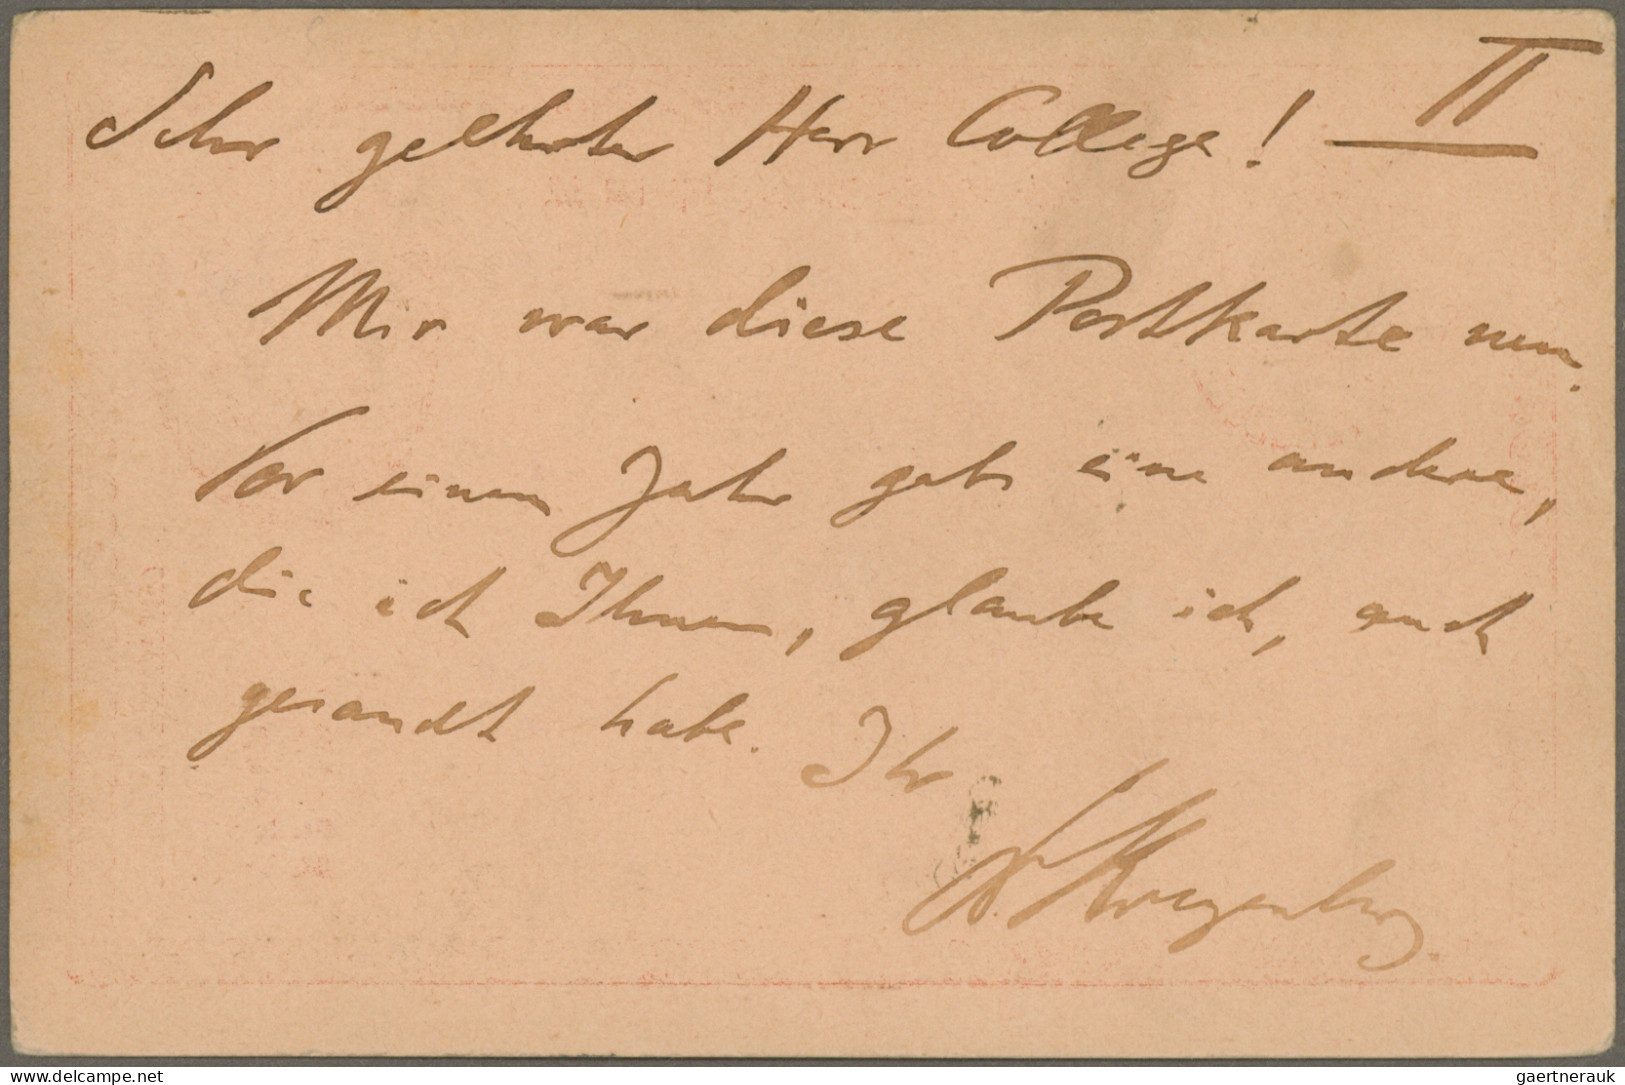 Sehr geehrter Herr College! II
Mir war diese Postkarte neu.
Vor einem Jahr gab's eine andere,
die ich Ihnen, glaube ich, auch
gesandt habe. Ihr
www.delcampe.net
gaertnerauk